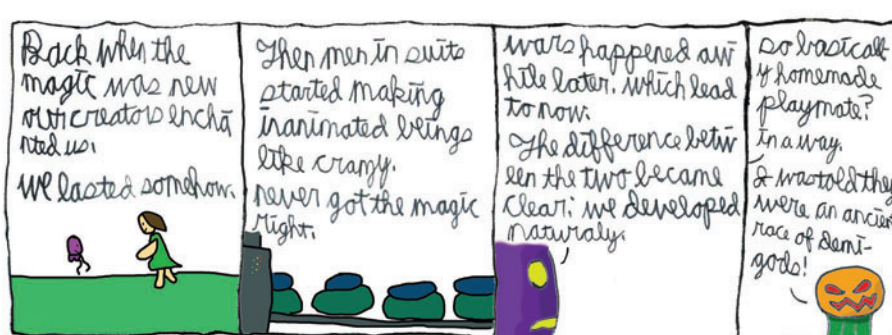 Back when the
magic was new
our creators encha
nted us.
we lasted somehow.
Then men in suits
started making
inanimated beings
like crazy.
never got the magic
right.
wars happened aw
hile later. which lead
to now.
The difference betw
een the two became
clear: we developed
naturaly.
so basicall
y homemade
playmate?
in a way.
I was told they
were an ancien
race of demi-
gods!